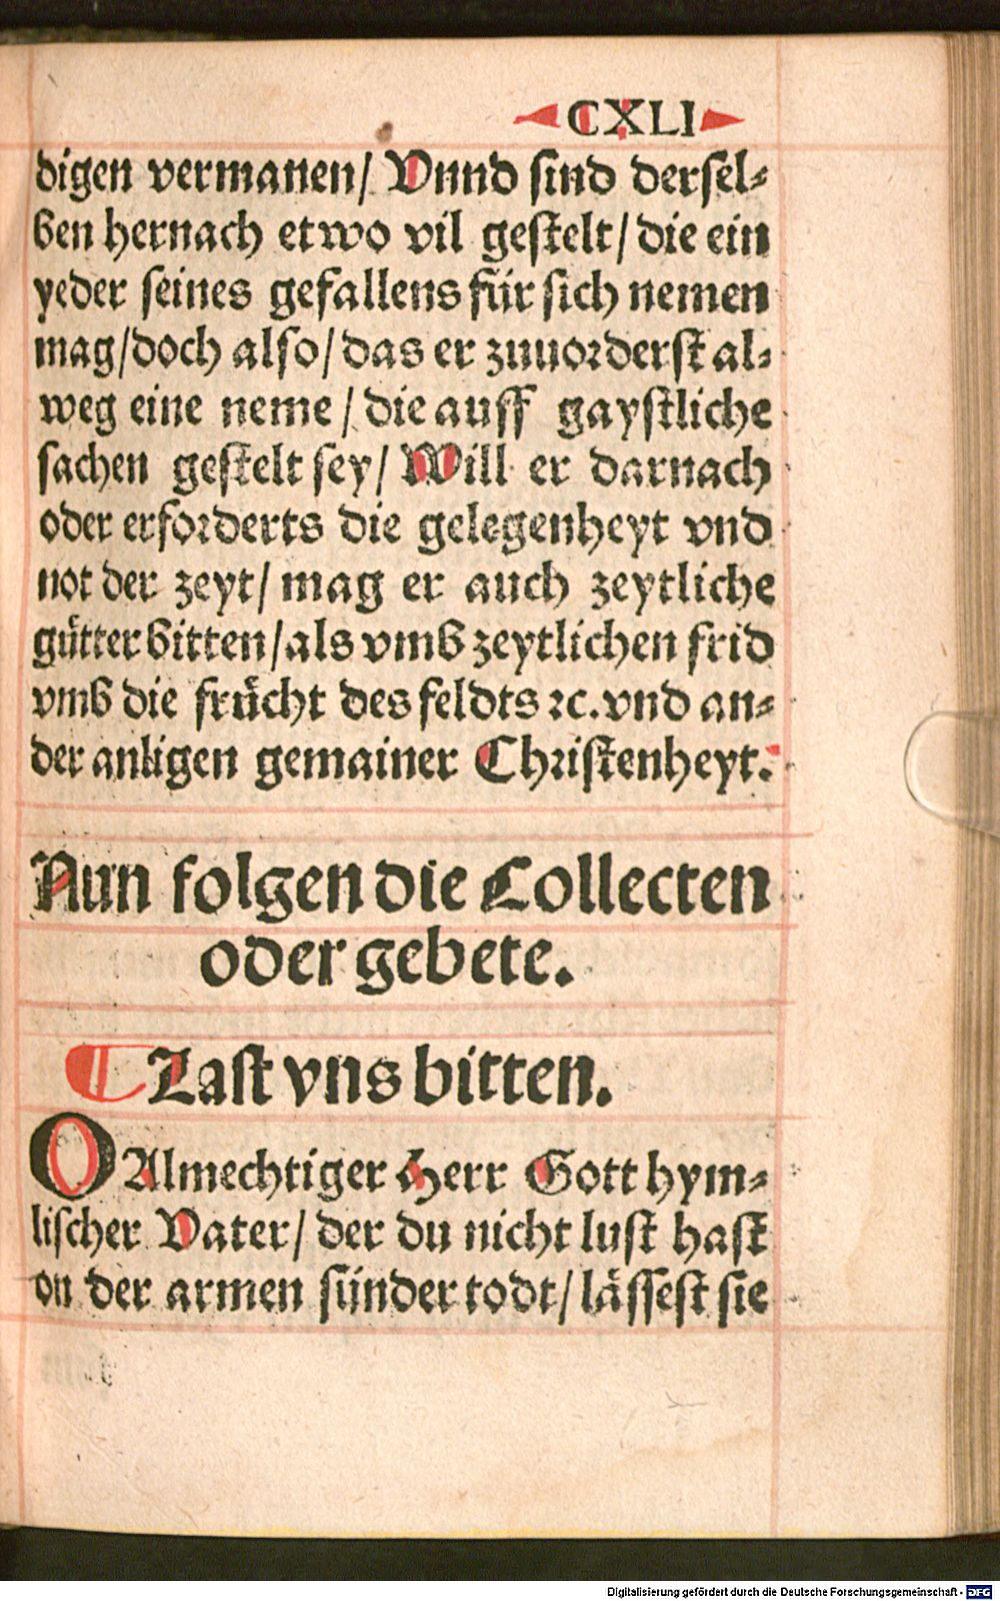 CXLI
digen vermanen/ Vnnd sind dersel⸗
ben hernach etwo vil gestelt/ die ein
yeder seines gefallens für sich nemen
mag/ doch also/ das er zuuorderst al⸗
weg eine neme/ die auff gaystliche
sachen gestelt sey/ Will er darnach
oder erforderts die gelegenheyt vnd
not der zeyt/ mag er auch zeytliche
gütter bitten/ als vmb zeytlichen frid
vmb die frücht des feldts ꝛc. vnd an⸗
der anligen gemainer Christenheyt.
Nun folgen die Collecten
oder gebete.
Last vns bitten.
O Almechtiger Herr Gott hym⸗
lischer Vater/ der du nicht lust hast
on der armen sünder todt/ lässest sie
Digitalisierung gefördert durch die Deutsche Forschungsgemeinschaft - DFG